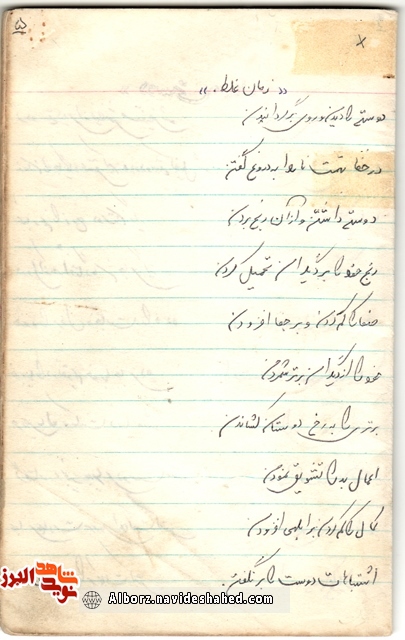 ۵
×
«زمان غلط.»
دوستی را دیدن و روی برگردانیدن
در خفا تهمت ناروا به دروغ گفتن
دوستی داشتن و از آن رنج بردن
رنج خود را بر دیگران تحمیل کردن
صفا را کم کردن و بر جفا افزودن
خود را از دیگران برتر شمردن
برتری را به رخ دوستان کشاندن
اعمال بد را تشویق نمودن
کمال را کم کردن بر ابلهی افزودن
اشتباهات دوست را بر نگفتن.
شاهد
نوید البرز
Alborz.navideshahed.com